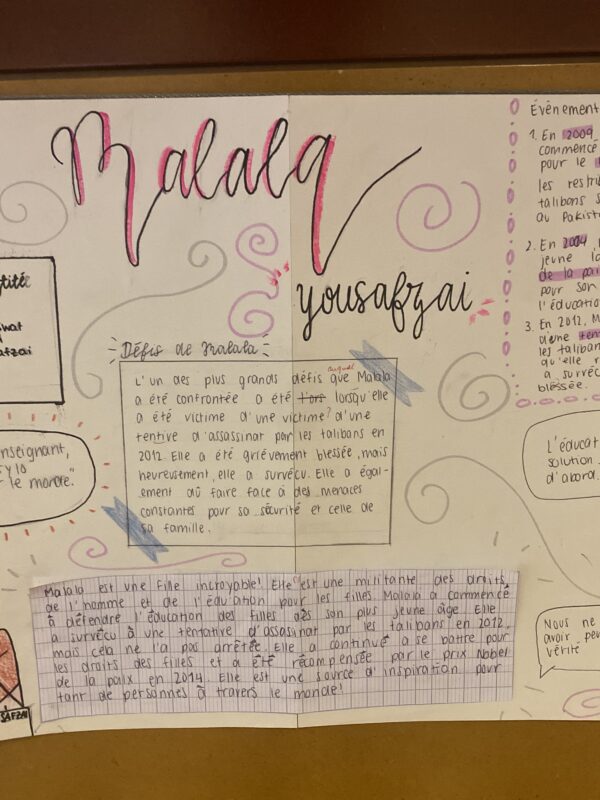 Malala
yousafzai
Défis de Malala
auquel
L'un des plus grands défis que Malala
a été confrontée a été lors lorsqu'elle
a été victime d'une victime? d'une
tentive d'assassinat par les talibans en
2012. Elle a été grièvement blessée, mais
heureusement, elle a survécu. Elle a égal-
ement dû faire face à des menaces
constantes pour sa sécurité et celle de
sa famille.
Malala est une fille incroyable! Elle est une militante des droits
de l'homme et de l'éducation pour les filles Malala a commencé
à défendre l'éducation des filles dès son plus jeune âge. Elle
a survécu à une tentative d'assasinat par les talibans en 2012,
mais cela ne l'a pas arrêtée. Elle a continué a se battre pour
les droits des filles et a été récompensée par le prix Nobel
de la paix en 2014. Elle est une source d'inspiration pour
tant de personnes à travers le monde!
nseignant,
le monde."
Événement
1. En 2009
commencé
pour le
les restri
talibans s
au Pakist
2. En 2004,
jeune la
de la pai
pour son
l'éducatio
3. En 2012, M
d'une ten
les taliban
qu'elle r
a survéc
bléssée.
L'éducat
solution
d'abord.
Nous ne
avoir peu
vérité